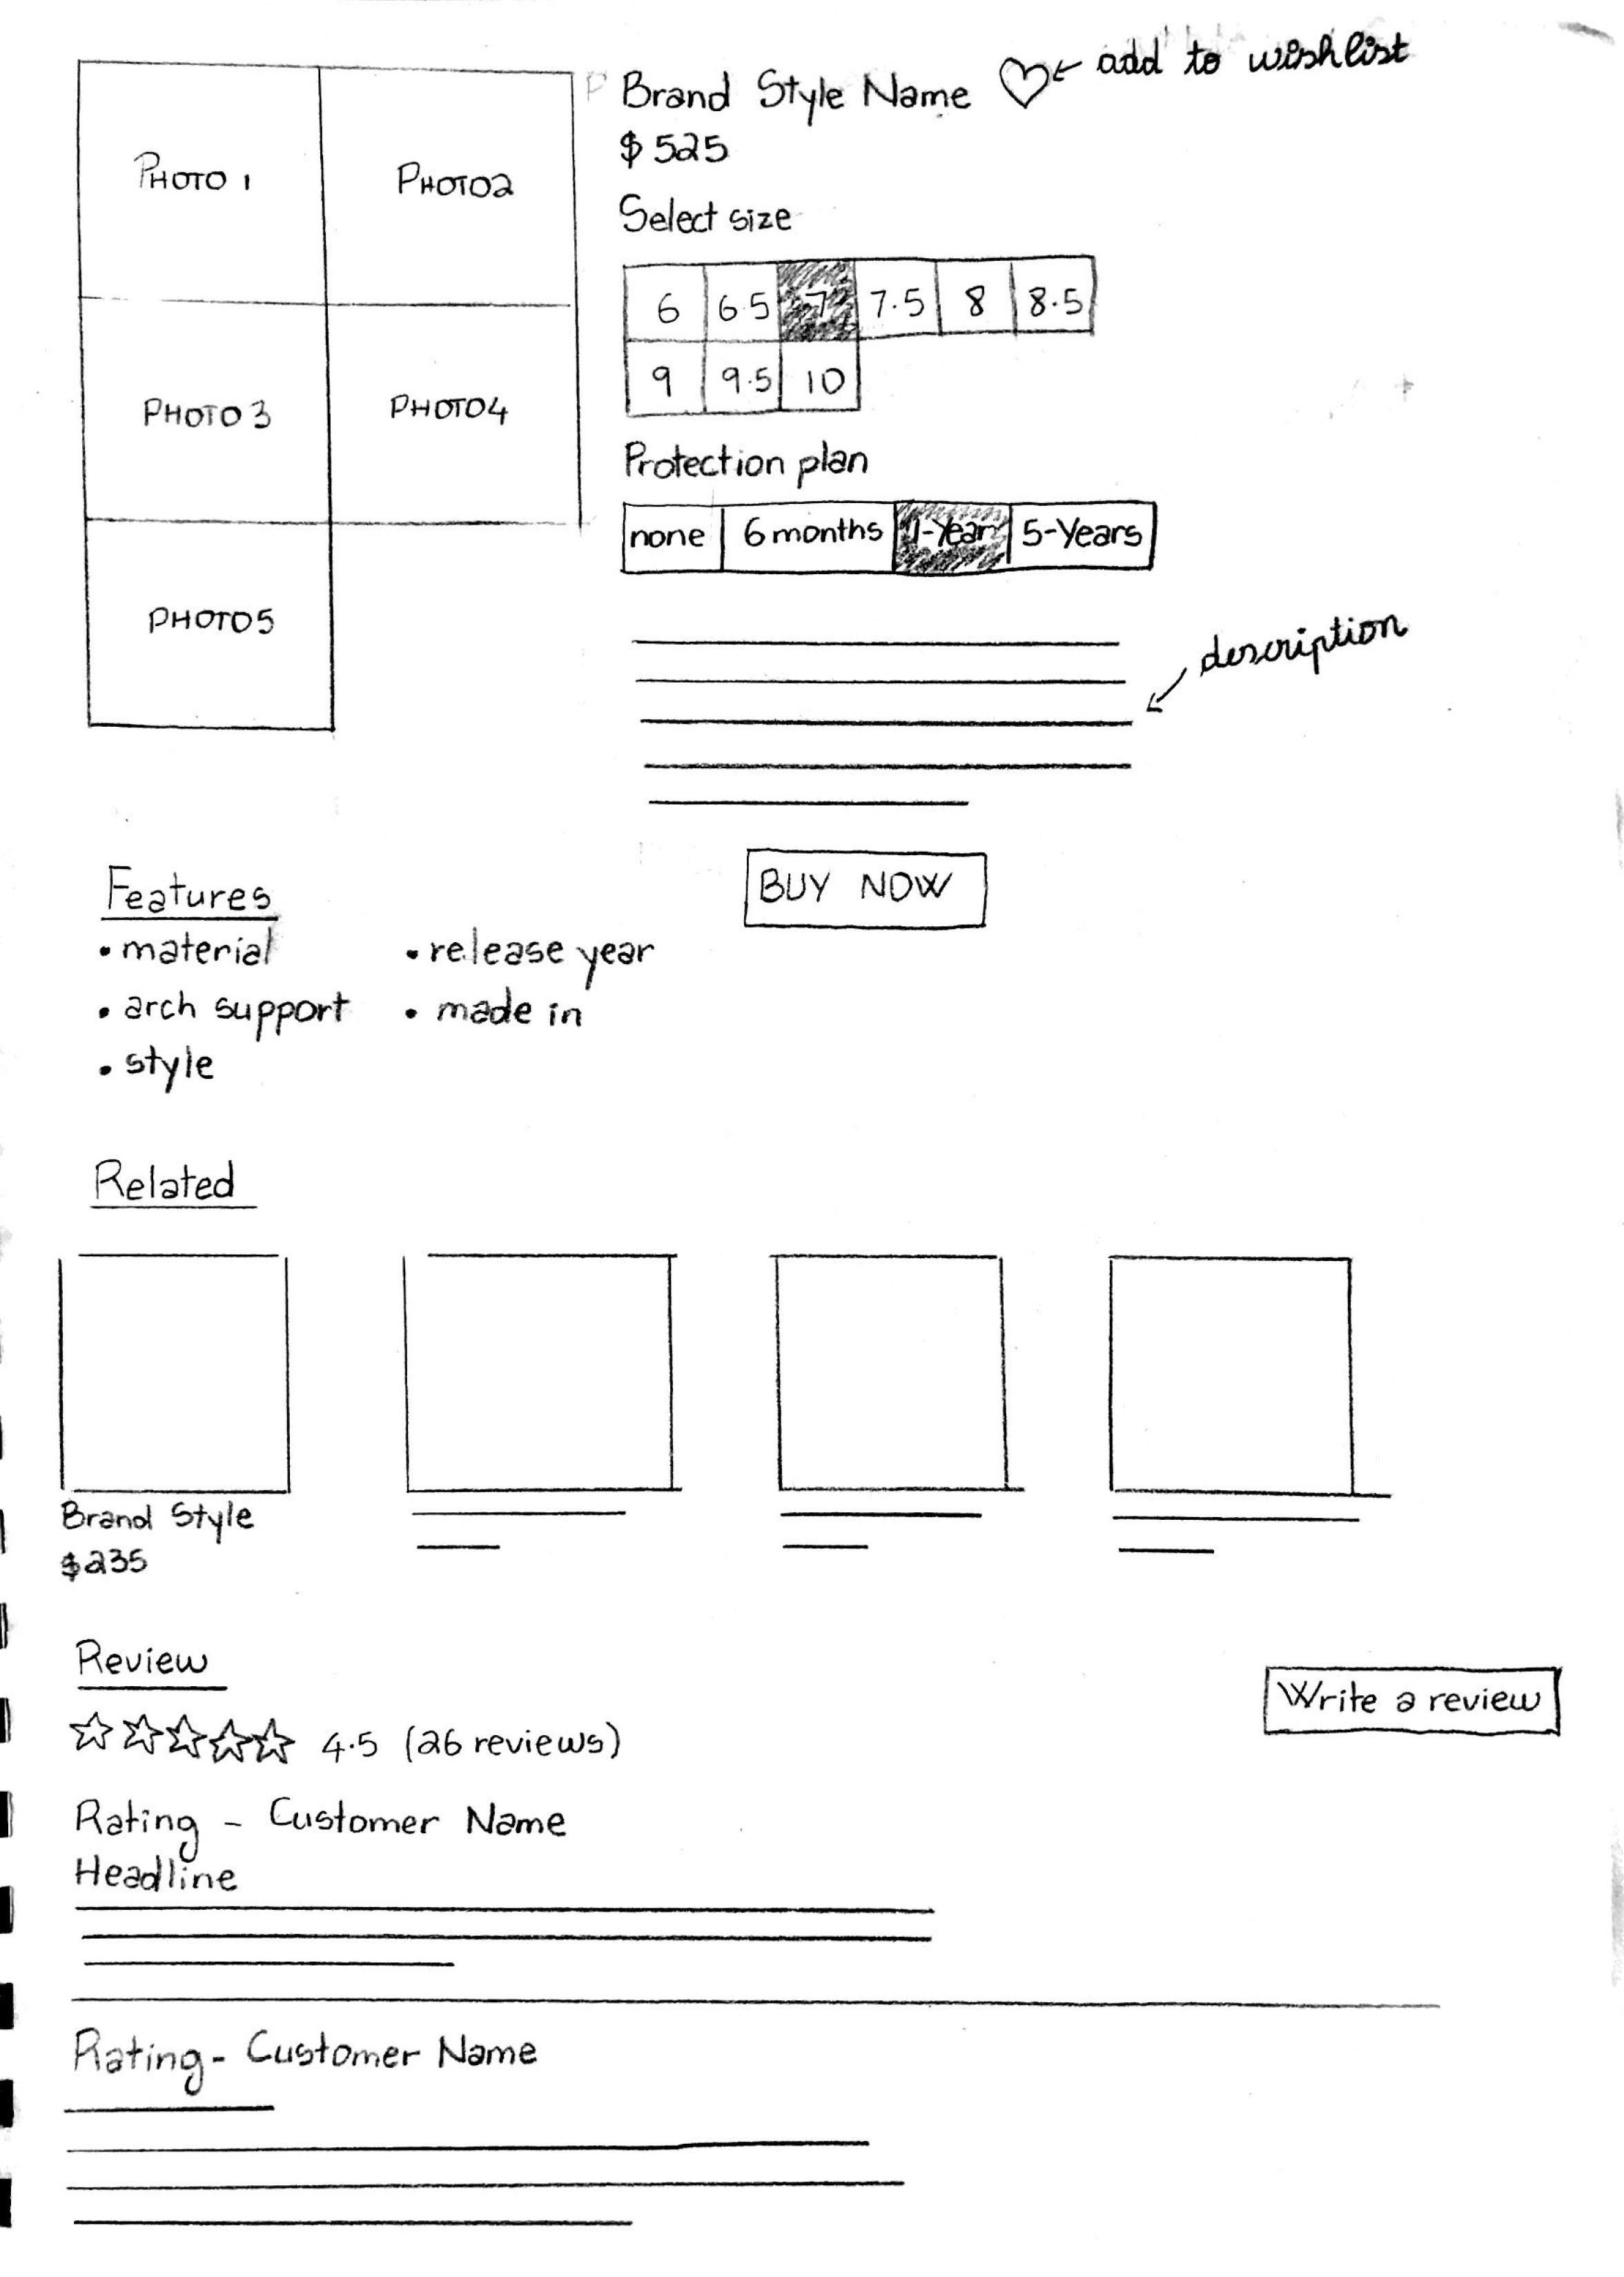 PHOTO 1
PHOTO2
PHOTO 3
PHOTO4
PHOTO5
Brand Style Name
add to wishlist
$525
Select size
6 6.5 7 7.5 8 8.5
9 9.5 10
Protection plan
none 6 months 1-Year 5-Years
description
BUY NOW
Features
• material
• arch support
• style
• release year
• made in
Related
Brand Style
$235
Review
4.5 (26 reviews)
Write a review
Rating - Customer Name
Headline
Rating - Customer Name